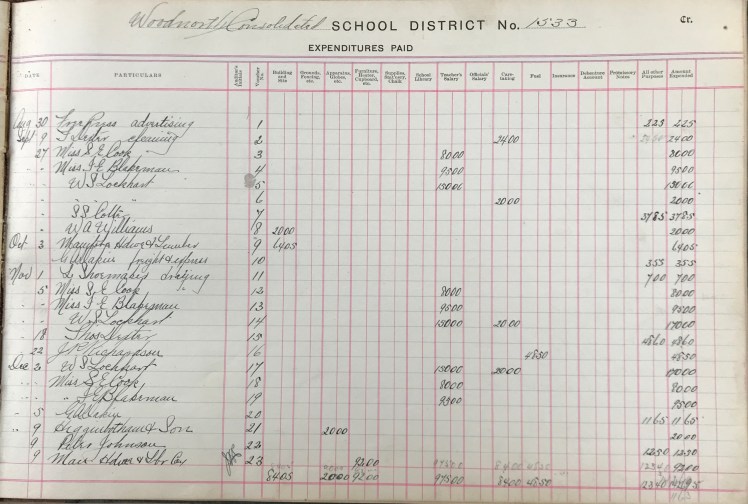 Woodnorth Consolidated SCHOOL DISTRICT No. 1533 Cr.
EXPENDITURES PAID
DATE PARTICULARS Auditor's Initials Voucher No. Building and Site Grounds, Fencing, etc. Apparatus, Globes, etc. Furniture, Heater, Cupboard, etc. Supplies, Ball'cony, Chalk School Library Teacher's Salary Officials' Salary Care-taking Fuel Insurance Debenture Account Promissory Notes All other Purposes Amount Expended
Aug 30 advertising 1 225 225
Sept 9 cleaning 2 2400 2400
27 Miss S E Cook 3 8000 8000
" Miss F E Blakeman 4 9500 9500
" W S Lockhart 5 15000 15000
" " " 6 2000 2000
" 7 3785 3785
" W A Williams 8 2000 2000
Oct 3 & Lumber 9 6405 6405
freight & express 10 355 355
Nov 1 11 700 700
5 Miss S E Cook 12 8000 8000
" Miss F E Blakeman 13 9500 9500
" W S Lockhart 14 15000 2000 17000
" 18 Thos 15 4860 4860
" 22 Richardson 16 4850 4850
Dec 2 W S Lockhart 17 15000 2000 17000
" Miss S E Cook 18 8000 8000
" " F E Blakeman 19 9500 9500
" 5 20 1165 1165
" 9 Higginbotham & Son 21 2000 2000
9 Johnson 22 1250 1250
9 23 9200 9200
8405 2000 9200 97500 8400 4850 12340